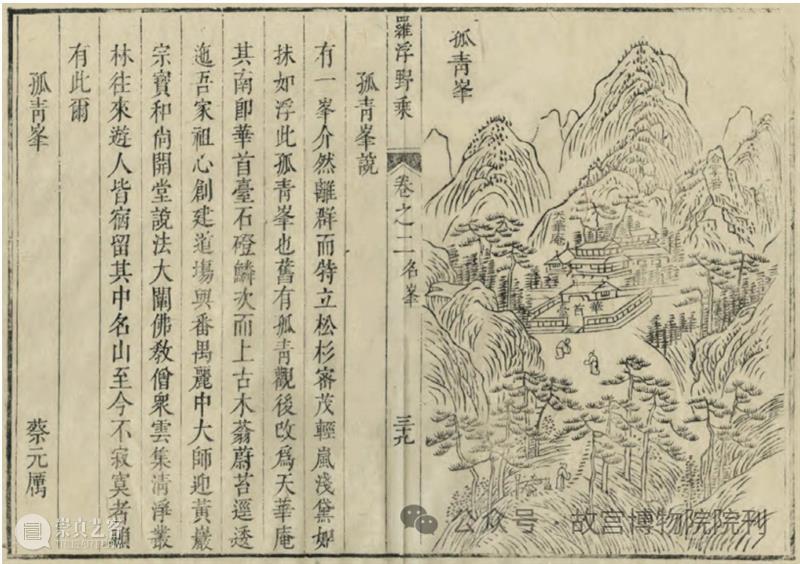 孤青峯
合掌岩
天華庵
華首臺
羅浮野乘
卷之二 名峯
三十九
孤青峯說
有一峯介然離群而特立松杉密茂輕嵐淺黛如
抹如浮此孤青峯也舊有孤青觀後改爲天華庵
其南卽華首臺石磴鱗次而上古木蓊蔚苔逕逶
迤吾家祖心創建道塲與番禺麗中大師迎黃巖
宗寶和尚開堂說法大闡佛敎僧衆雲集淸淨叢
林往來遊人皆宿留其中名山至今不寂寞者賴
有此爾
孤青峯
蔡元厲
崇真艺客
公众号 故宫博物院院刊